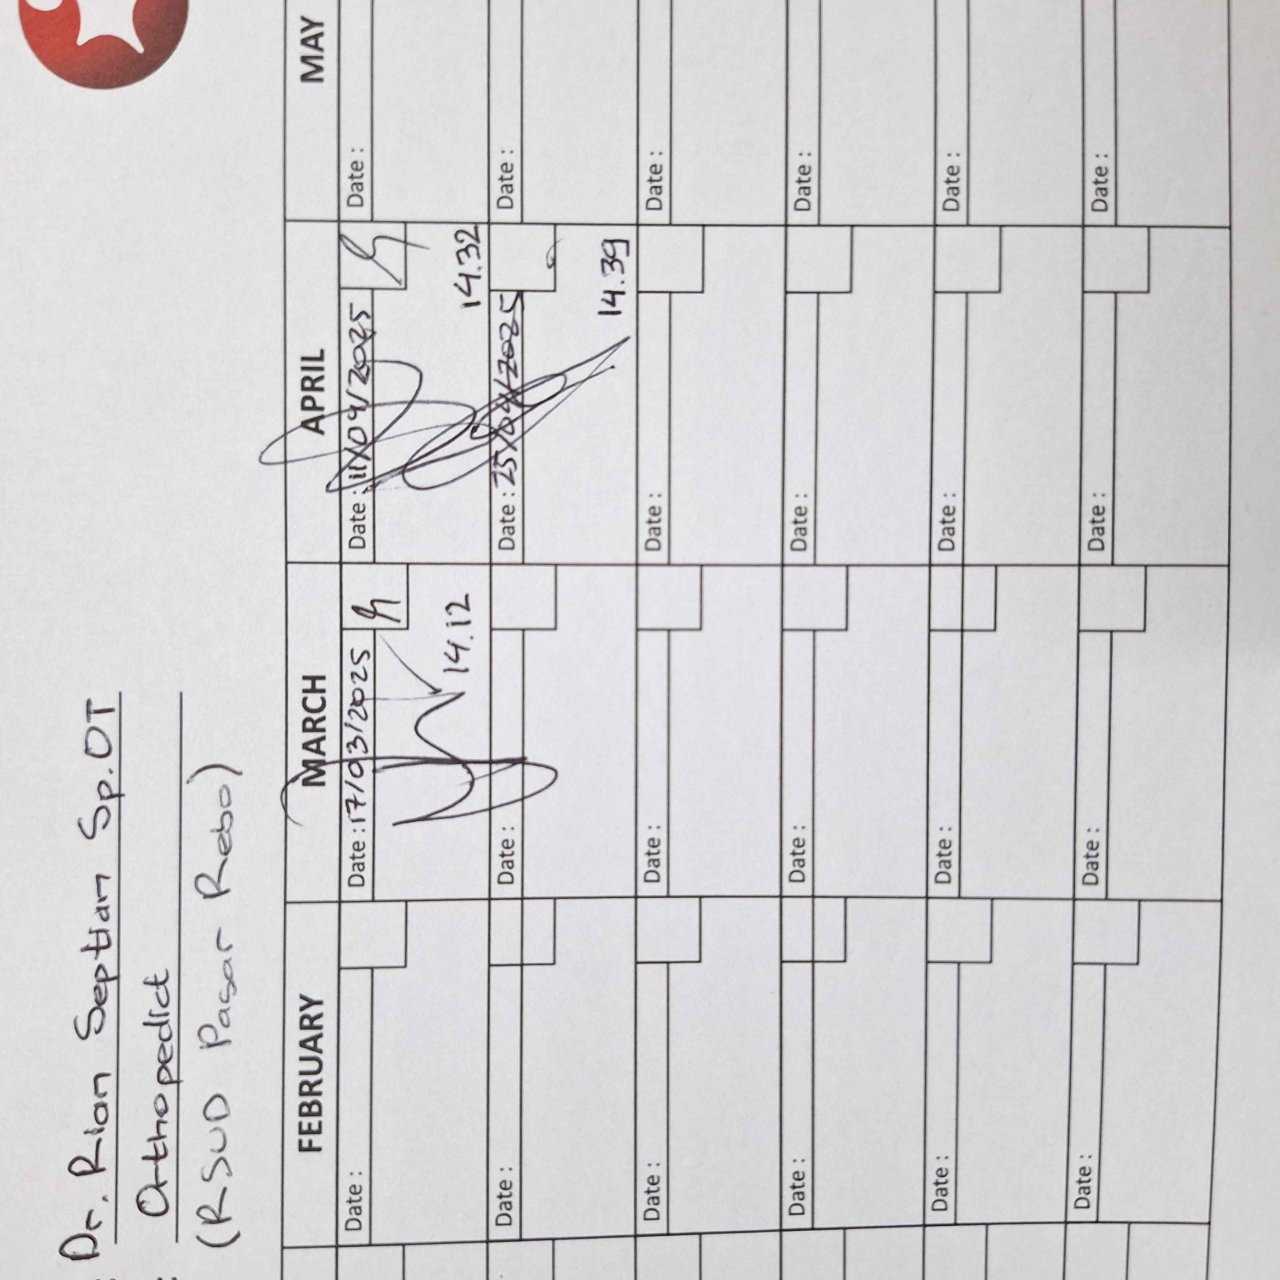 Dr. Rian Septian Sp.OT
Orthopedict
(RSUD Pasar Rebo)
FEBRUARY MARCH APRIL MAY
Date : Date : 17/03/2025 Date : 11/04/2025 Date :
14.12 14.32
Date : Date : Date : 25/04/2025 Date :
14.39
Date : Date : Date : Date :
Date : Date : Date : Date :
Date : Date : Date : Date :
Date : Date : Date : Date :